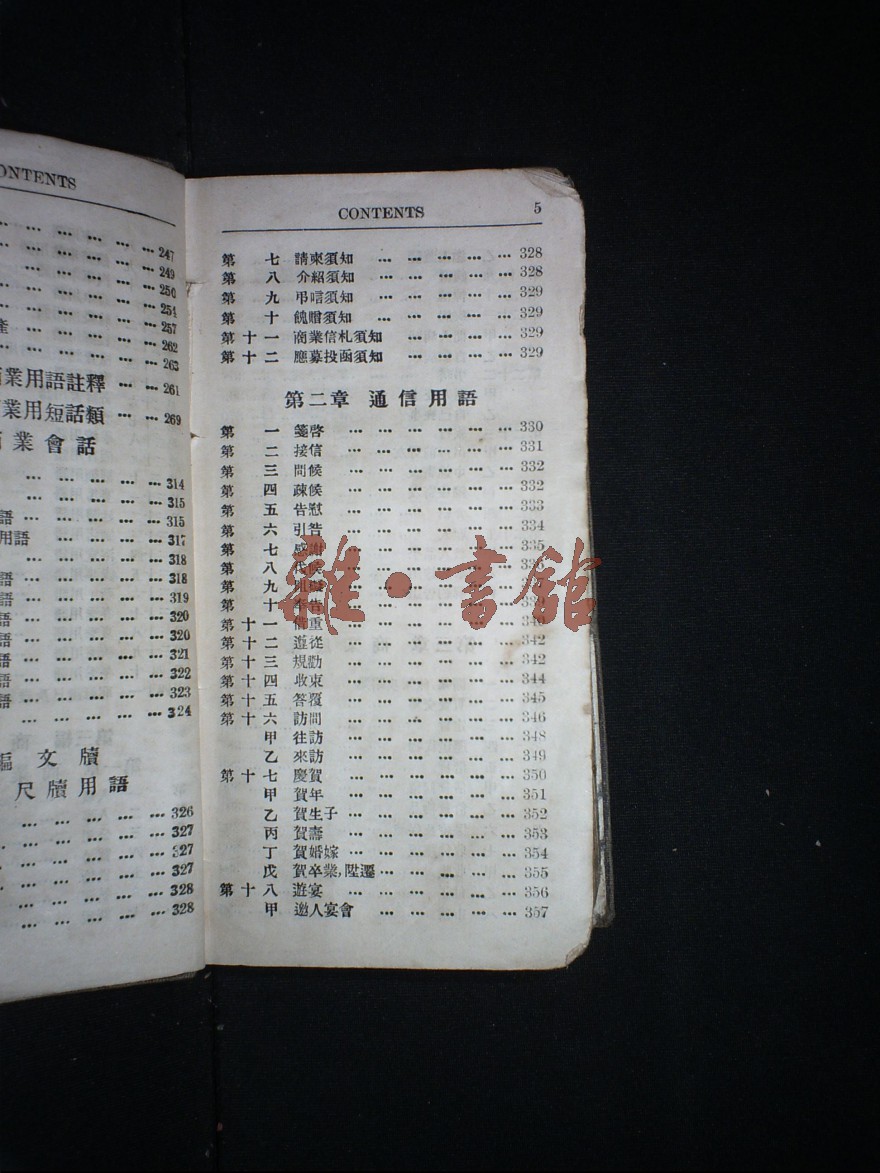 CONTENTS
… … … … … 247
… … … … … 249
… … … … … 250
… … … … … 254
… … … … 257
… … … … … 262
… … … … … 263
業用語註釋 … … 261
業用短話類 … … 269
業會話
… … … … … 314
… … … … … 315
語 … … … … … 315
用語 … … … … 317
… … … … … 318
語 … … … … … 318
語 … … … … … 319
語 … … … … … 320
語 … … … … … 320
語 … … … … … 321
語 … … … … … 322
語 … … … … … 323
… … … … … 324
文牘
尺牘用語
… … … … … 326
… … … … … 327
… … … … … 327
… … … … … 327
… … … … … 328
… … … … … 328
CONTENTS 5
第七 請柬須知 … … … … … 328
第八 介紹須知 … … … … … 328
第九 弔唁須知 … … … … … 329
第十 餽贈須知 … … … … … 329
第十一 商業信札須知 … … … … 329
第十二 應募投函須知 … … … … 329
第二章 通信用語
第一 箋啓 … … … … … … 330
第二 接信 … … … … … … 331
第三 問候 … … … … … … 332
第四 疎候 … … … … … … 332
第五 告慰 … … … … … … 333
第六 引告 … … … … … … 334
第七 感謝 … … … … … … 335
第八 代候 … … … … … …
第九 … … … … … …
第十 奉告 … … … … … …
第十一 借重 … … … … … … 340
第十二 遵從 … … … … … … 342
第十三 規勸 … … … … … … 342
第十四 收束 … … … … … … 344
第十五 答覆 … … … … … … 345
第十六 訪問 … … … … … … 346
甲 往訪 … … … … … … 348
乙 來訪 … … … … … … 349
第十七 慶賀 … … … … … … 350
甲 賀年 … … … … … … 351
乙 賀生子 … … … … … … 352
丙 賀壽 … … … … … … 353
丁 賀婚嫁 … … … … … 354
戊 賀卒業,陞遷 … … … … … 355
第十八 遊宴 … … … … … … 356
甲 邀人宴會 … … … … … 357
雜·書館